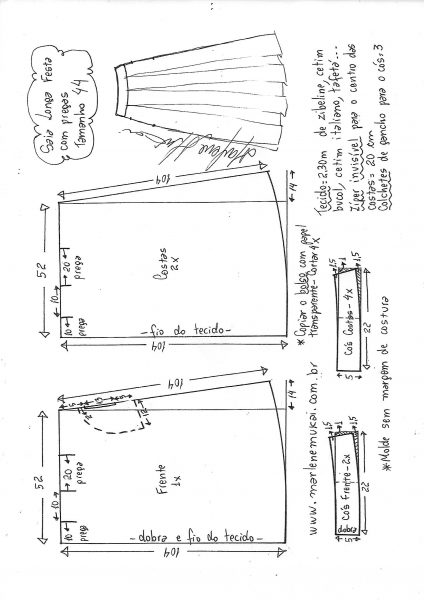 Saia Longa Festa
com pregas
Tamanho 44
Tecido: 2,30m de zibeline, cetim
bucol, cetim italiano, tafetá...
Zíper invisível para o centro das
costas = 20 cm
Colchetes de gancho para o cós: 3
104
14
52
20
prega
10
10
prega
Costas
2x
fio do tecido
104
* Copiar o bolso com papel
transparente - Cortar 4x
1,5
1
1,5
Cós Costas - 4x
22
5
104
14
52
20
prega
10
10
prega
Frente
1x
dobra e fio do tecido
104
www.marlenemukai.com.br
1,5
1
1,5
Cós frente - 2x
dobra
22
5
* Molde sem margem de costura